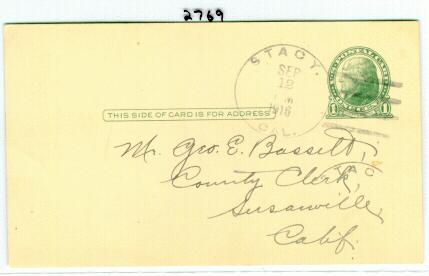 2769
STACY.
SEP
12
M
1916
CAL.
THIS SIDE OF CARD IS FOR ADDRESS
1 1
Mr. Geo. E. Bassett,
TAC
County Clerk,
Susanville,
Calif.